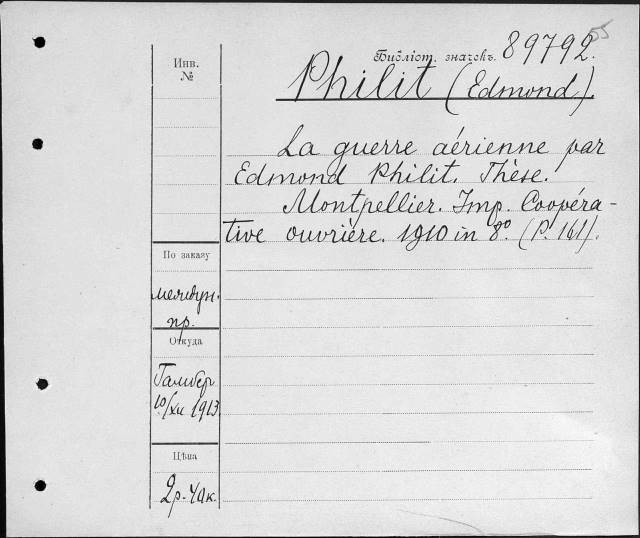 55
Библіот. значекъ. 89792.
Инв.
№
Philit (Edmond).
La guerre aérienne par
Edmond Philit. Thèse.
Montpellier. Imp. Coopéra-
tive ouvrière. 1910 in 8º. (P. 161).
По заказу
междун.
пр.
Откуда
Гамбер
10/XII 1913
Цѣна
2р. 40к.